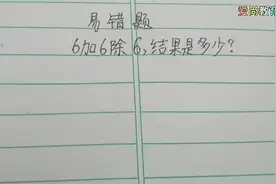 爱尚教育
易错题
6加6除6,结果是多少?